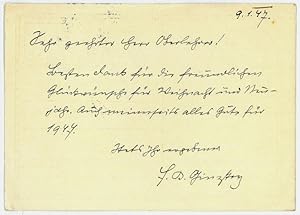 9.1.47.
Sehr geehrter Herr Oberlehrer!
Besten Dank für die freundlichen
Glückwünsche für Weihnacht und Neu-
jahr. Auch meinerseits alles Gute für
1947.
Stets Ihr ergebener
F. K. Ginzkey